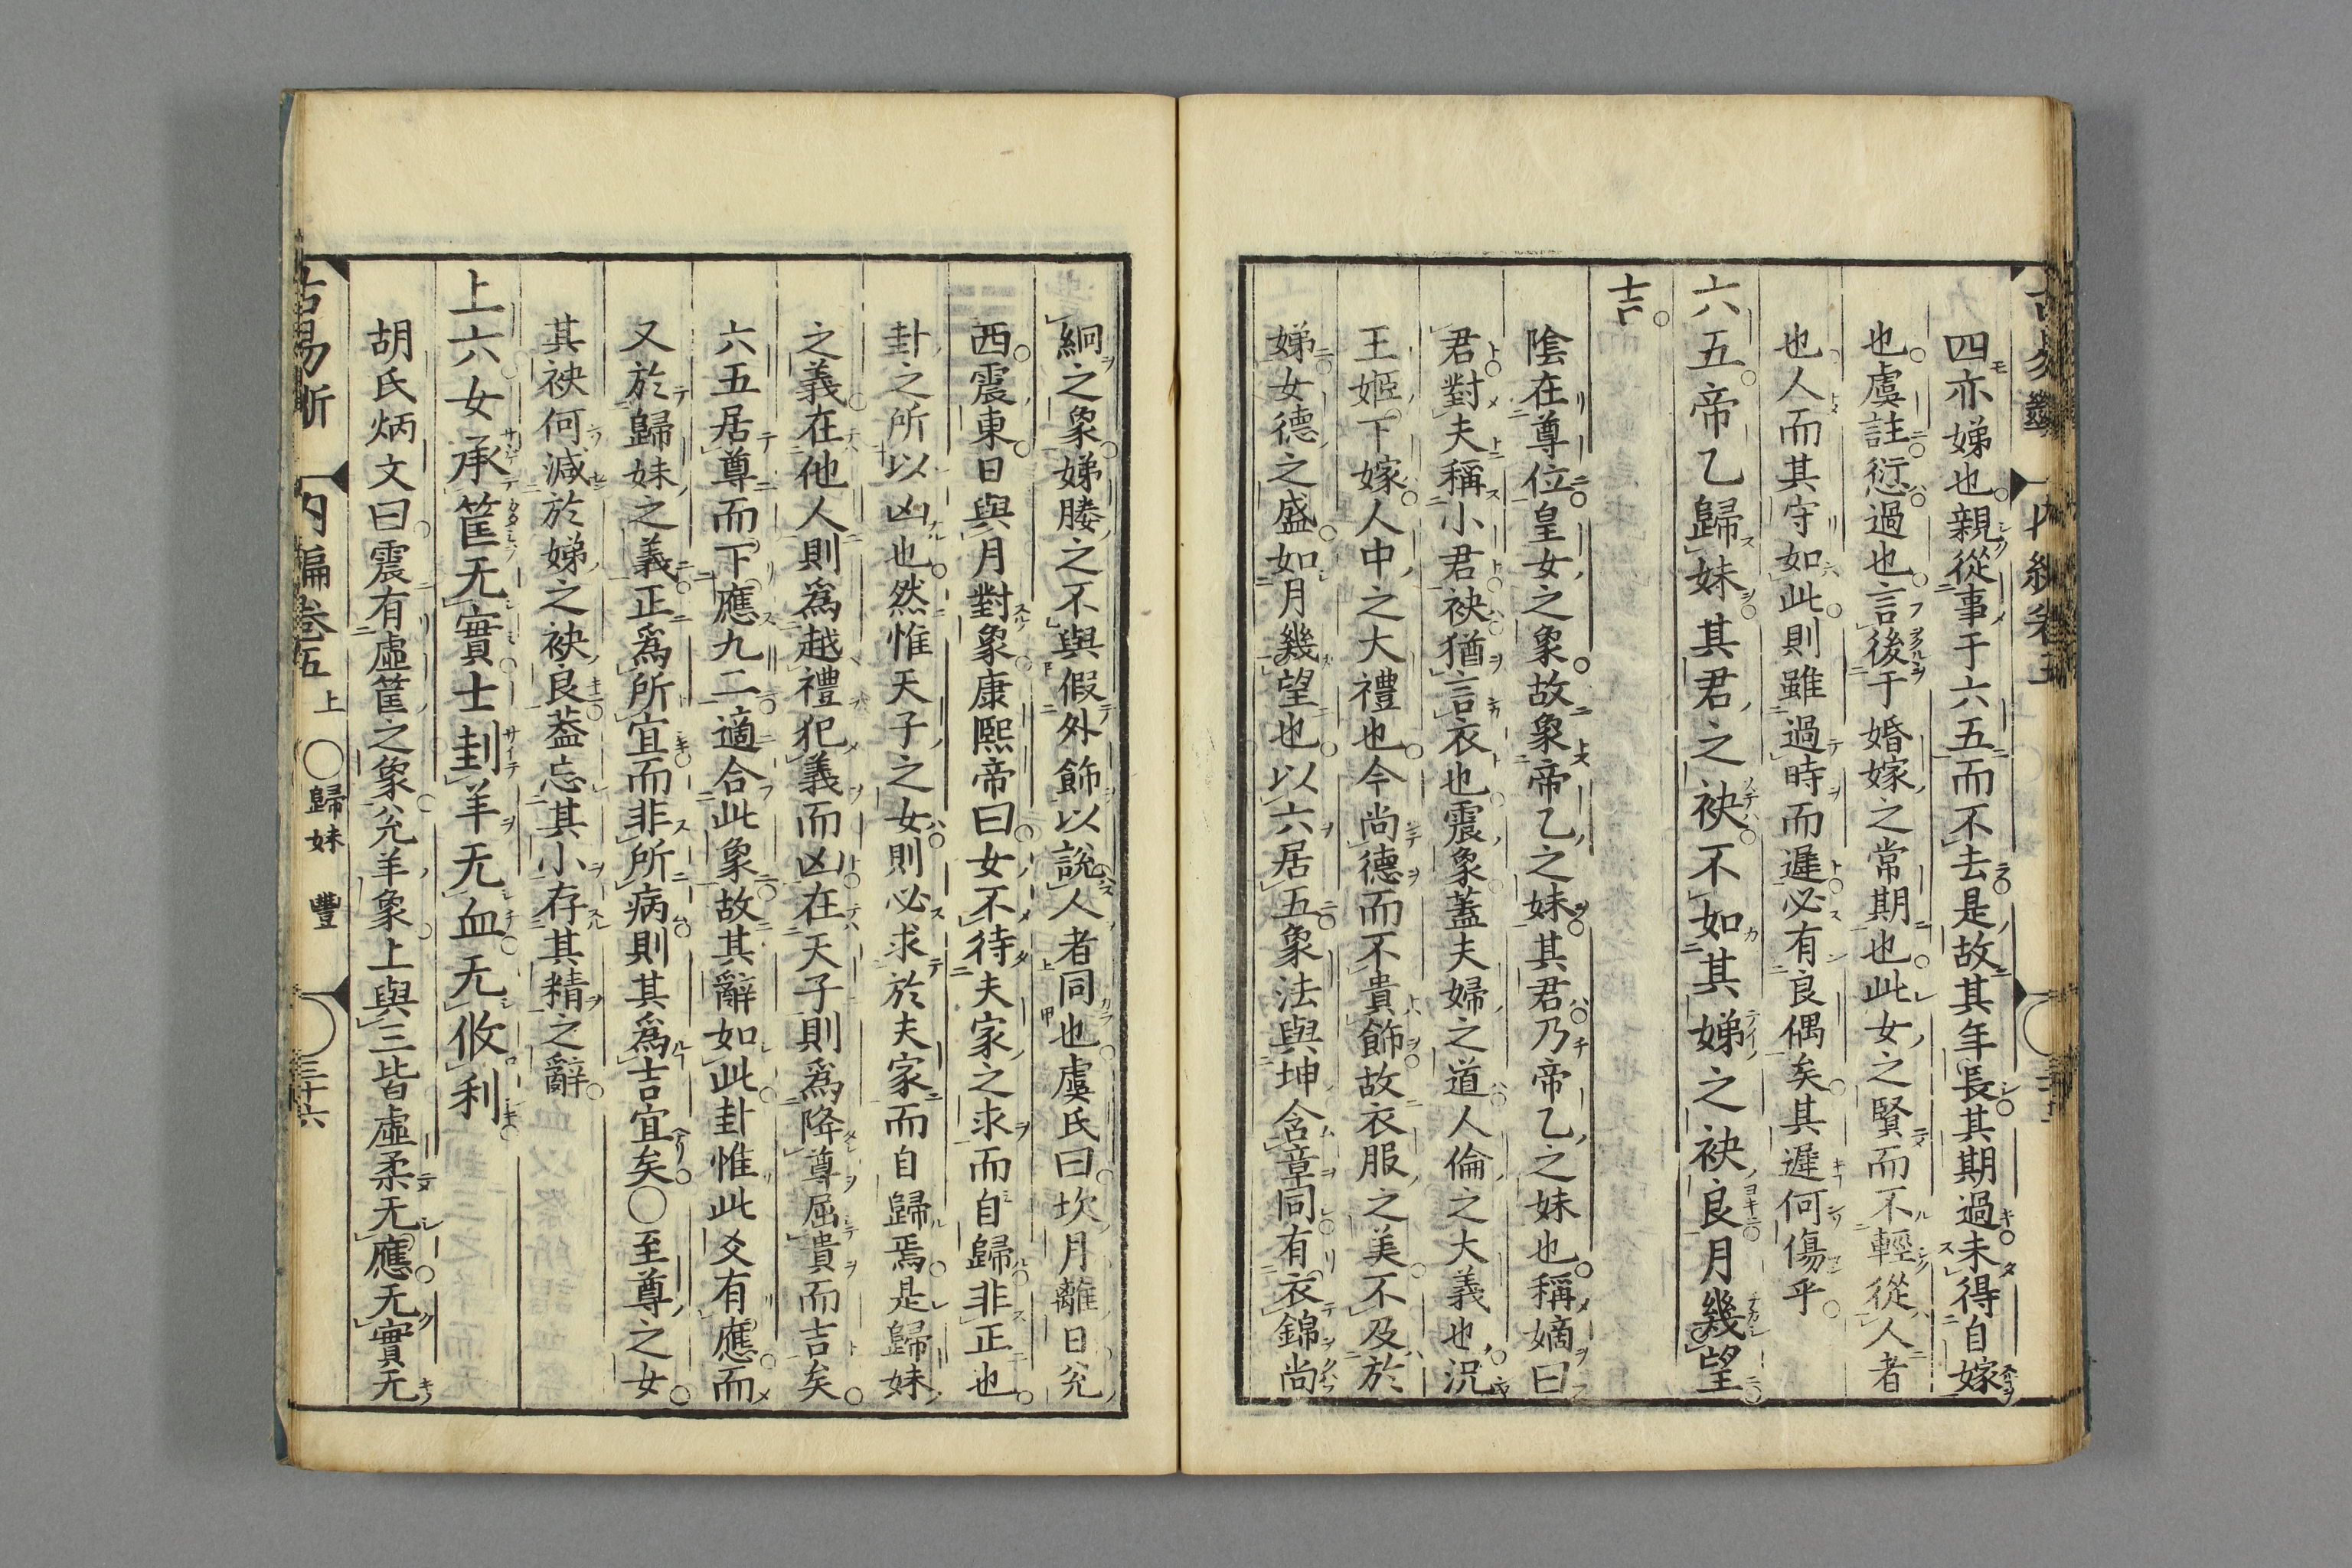 四亦娣也親從事于六五而不去是故其年長其期過未得自嫁
也虞註愆過也言後于婚嫁之常期也此女之賢而不輕從人者
也人而其守如此則雖過時而遲必有良偶矣其遲何傷乎
六五帝乙歸妹其君之袂不如其娣之袂良月幾望
吉
陰在尊位皇女之象故象帝乙之妹其君乃帝乙之妹也稱嫡曰
君對夫稱小君袂猶言衣也震象蓋夫婦之道人倫之大義也況
王姬下嫁人中之大禮也今尚德而不貴飾故衣服之美不及於
娣女德之盛如月幾望也以六居五象法與坤含章同有衣錦尚
絅之象娣媵之不與假外飾以說人者同也虞氏曰坎月離日兌
西震東日與月對象康熙帝曰女不待夫家之求而自歸非正也
卦之所以凶也然惟天子之女則必求於夫家而自歸焉是歸妹
之義在他人則爲越禮犯義而凶在天子則爲降尊屈貴而吉矣
六五居尊而下應九二適合此象故其辭如此卦惟此爻有應而
又於歸妹之義正爲所宜而非所病則其爲吉宜矣○至尊之女
其袂何減於娣之袂良葢忘其小存其精之辭
上六女承筐无實士刲羊无血无攸利
胡氏炳文曰震有虛筐之象兌羊象上與三皆虛柔无應无實无
古易斷 內編卷五 上 ○歸妹 豐 三十六